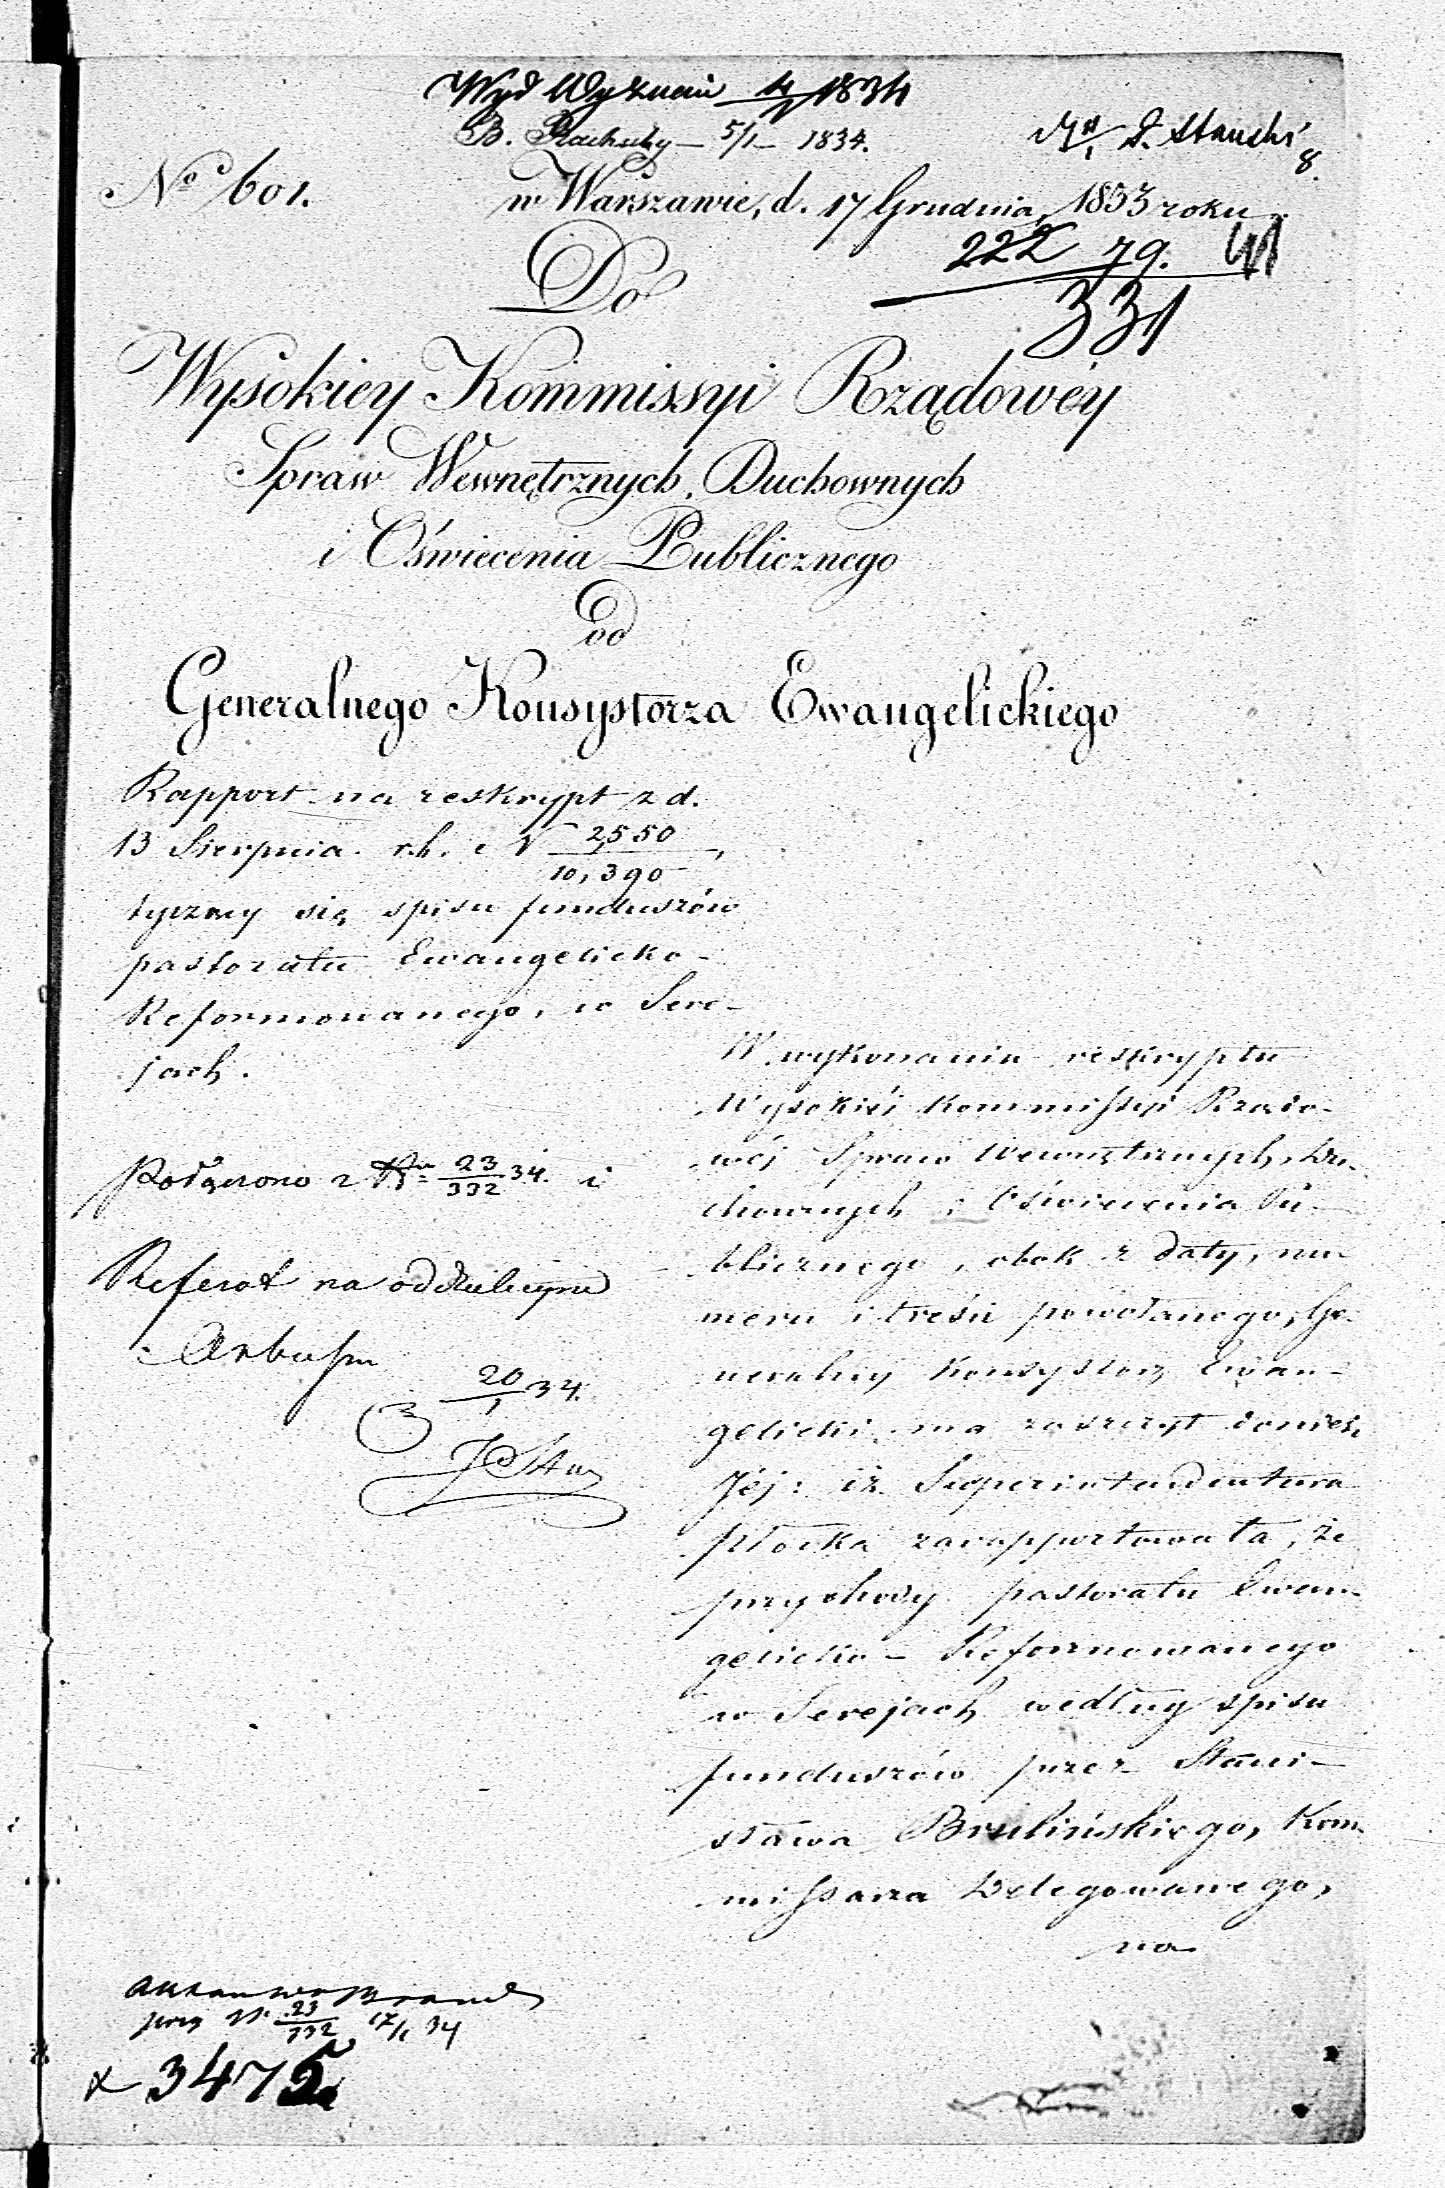 Wyd Wyznań 4/1 1834
B. Rachuby – 5/1 – 1834.
8.
No 601.
w Warszawie, d. 17 Grudnia, 1833 roku
222 79.
331
Do
Wysokiey Kommissyi Rządowéy
Spraw Wewnętrznych, Duchownych
i Oświecenia Publicznego
od
Generalnego Konsystorza Ewangelickiego
Rapport na reskrypt z d.
13 Sierpnia r.b. N 2,550/10,390,
tyczący się spisu funduszów
pastoratu Ewangelicko-
Reformowanego, w Sere-
jach.
Połączono z Nr 23/332 34. i
Referat na oddzielnym
Arkuszu
20/1 34.
W wykonaniu reskryptu
Wysokiéj Kommissyi Rządo-
wéj Spraw Wewnętrznych, Du-
chownych i Oświecenia Pu-
blicznego, obok z daty, nu-
meru i treści powołanego, Ge-
neralny Konsystorz Ewan-
gelicki ma zaszczyt donieść
Jéj: iż Superintendentura
Płocka zarapportowała, że
przychody pastoratu Ewan-
gelicko – Reformowanego
w Serejach według spisu
funduszów przez Stani-
sława Brulińskiego, Kom-
missarza Delegowanego,
na
przy N. 23/332 17/1 34
3475